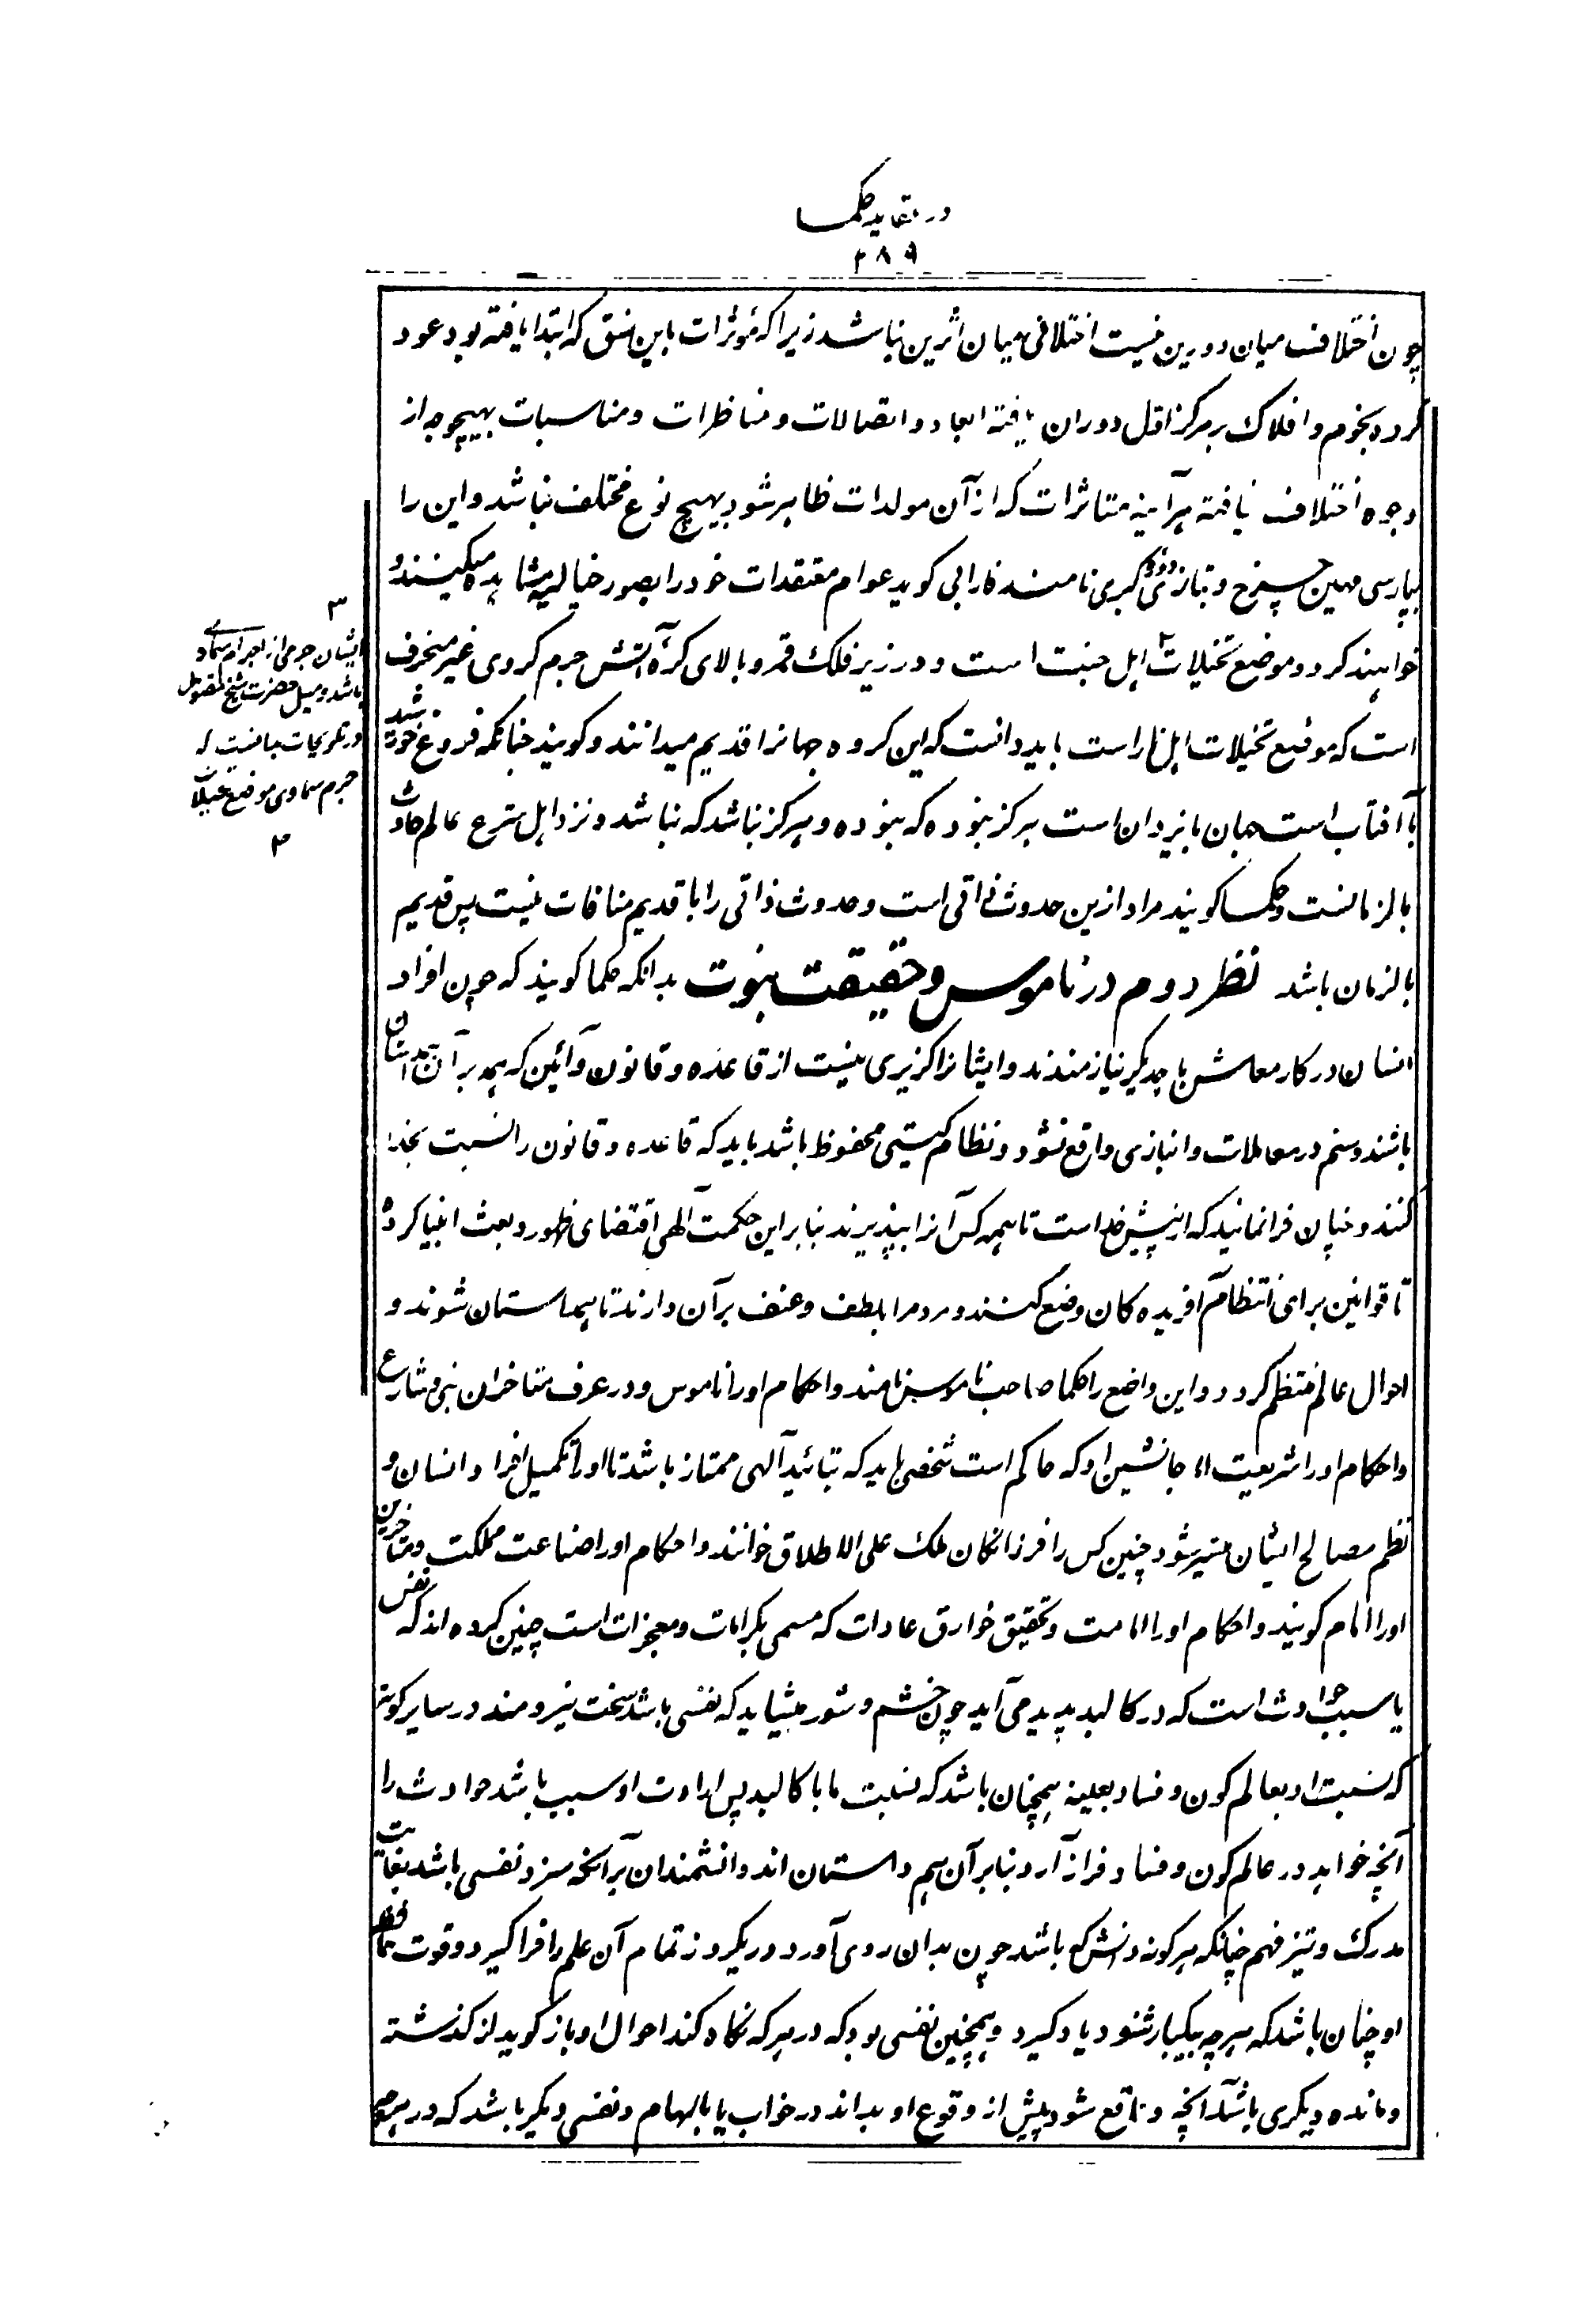 در عقاید حکما
۲۸۹
چون اختلاف میان دورین نیست اختلافی میان اثرین نباشد زیرا که مؤثرات باین نسق که ابتدا یافته بود عود
کرده نجوم و افلاک بر مرکز اول دوران یافته ابعاد و اتصالات و مناظرات و مناسبات بهیچوجه از
وجوه اختلاف نیافته هرآینه متاثرات که از آن مولدات ظاهر شود بهیچ نوع مختلف نباشد و این را
بپارسی مهین چرخ و بتازی دوره کبری نامند فارابی کوید عوام معتقدات خود را بصور خیالیه مشاهده میکنند و
خواهند کرد و موضع تخیلات اهل جنت است و در زیر فلک قمر و بالای کرهٔ آتش جرم کروی غیر منخرف
است که موضع تخیلات اهل نار است باید دانست که این کروه جهانرا قدیم میدانند و کویند چنانکه فروغ خورشید
با آفتاب است جهان با یزدان است هرکز نبوده که نبوده و هرکز نباشد که نباشد و نزد اهل شرع عالم حادث
بالزمانست و حکما کویند مراد ازین حدوث ذاتی است و حدوث ذاتی را با قدیم منافات نیست پس قدیم
بالزمان باشد نظر دوم در ناموس و حقیقت نبوت بدانکه حکما کویند که چون افراد
انسان در کار معاش با یکدیکر نیازمندند و ایشانرا کزیری نیست از قاعده و قانون و آئین که همه بر آن همداستان
باشند و ستم در معاملات و انبازی واقع نشود و نظام کیتی محفوظ باشد باید که قاعده و قانون را نسبت بخدا
کنند و چنان فرانمایند که از پیش خداست تا همه کس آنرا بپذیرند بنابر این حکمت آلهی اقتضای ظهور و بعث انبیا کرده
تا قوانین برای انتظام آفریده کان وضع کنند و مردم را بلطف و عنف برآن دارند تا همداستان شوند و
احوال عالم منتظم کردد و این واضع را حکما صاحب ناموس نامند و احکام او را ناموس و در عرف متاخران نبی و شارع
و احکام او را شریعت اما جانشین او که حاکم است شخصی باید که بتائید آلهی ممتاز باشد تا او را تکمیل افراد انسان و
نظم مصالح ایشان میسر شود چنین کس را فرزانکان ملک علی الاطلاق خوانند و احکام او را صناعت مملکت و متاخرین
او را امام کویند و احکام او را امامت و تحقیق خوارق عادات که مسمی بکرامات و معجزات است چنین کرده اند که نفس
یا سبب حوادث است که در کالبد پدید می آید چون خشم و شور میشاید که نفسی باشد سخت نیرومند در سایر کویند
که نسبت او بعالم کون و فساد بعینه همچنان باشد که نسبت ما با کالبد پس ارادت او سبب باشد حوادث را
آنچه خواهد در عالم کون و فساد فراز آرد بنابر آن هم داستان اند دانشمندان برآنکه سزد نفسی باشد بغایت
مدرک و تیز فهم چنانکه هرکونه دانش که باشد چون بدان روی آورد در یکروز تمام آن علم را فراکیرد و قوت حافظه
او چنان باشد که هرچه بیکبار شنود یاد کیرد و همچنین نفسی بود که در هرکه نکاه کند احوال او باز کوید از کذشته
و مانده و دیکری باشد آنچه واقع شود پیش از وقوع او بداند در خواب یا بالهام و نفسی دیکر باشد که در هرچه
۳
ایشان جرمی از اجرام سماوی
باشد و میل حضرت شیخ مقتول
در تلویحات بدانست که
جرم سماوی موضع تخیلات
۳